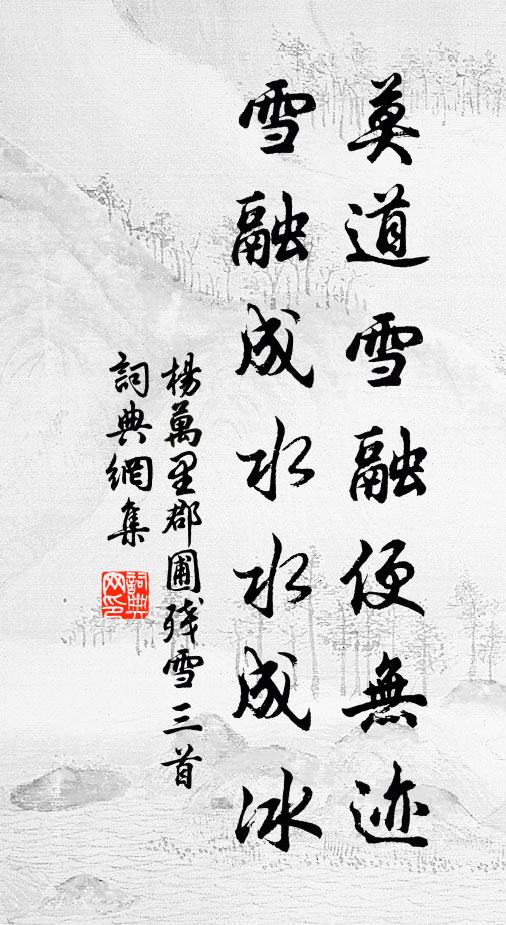 莫道雪融便無迹
雪融成水水成冰
楊萬里郡圃殘雪三首
詞典網集
詞典网印